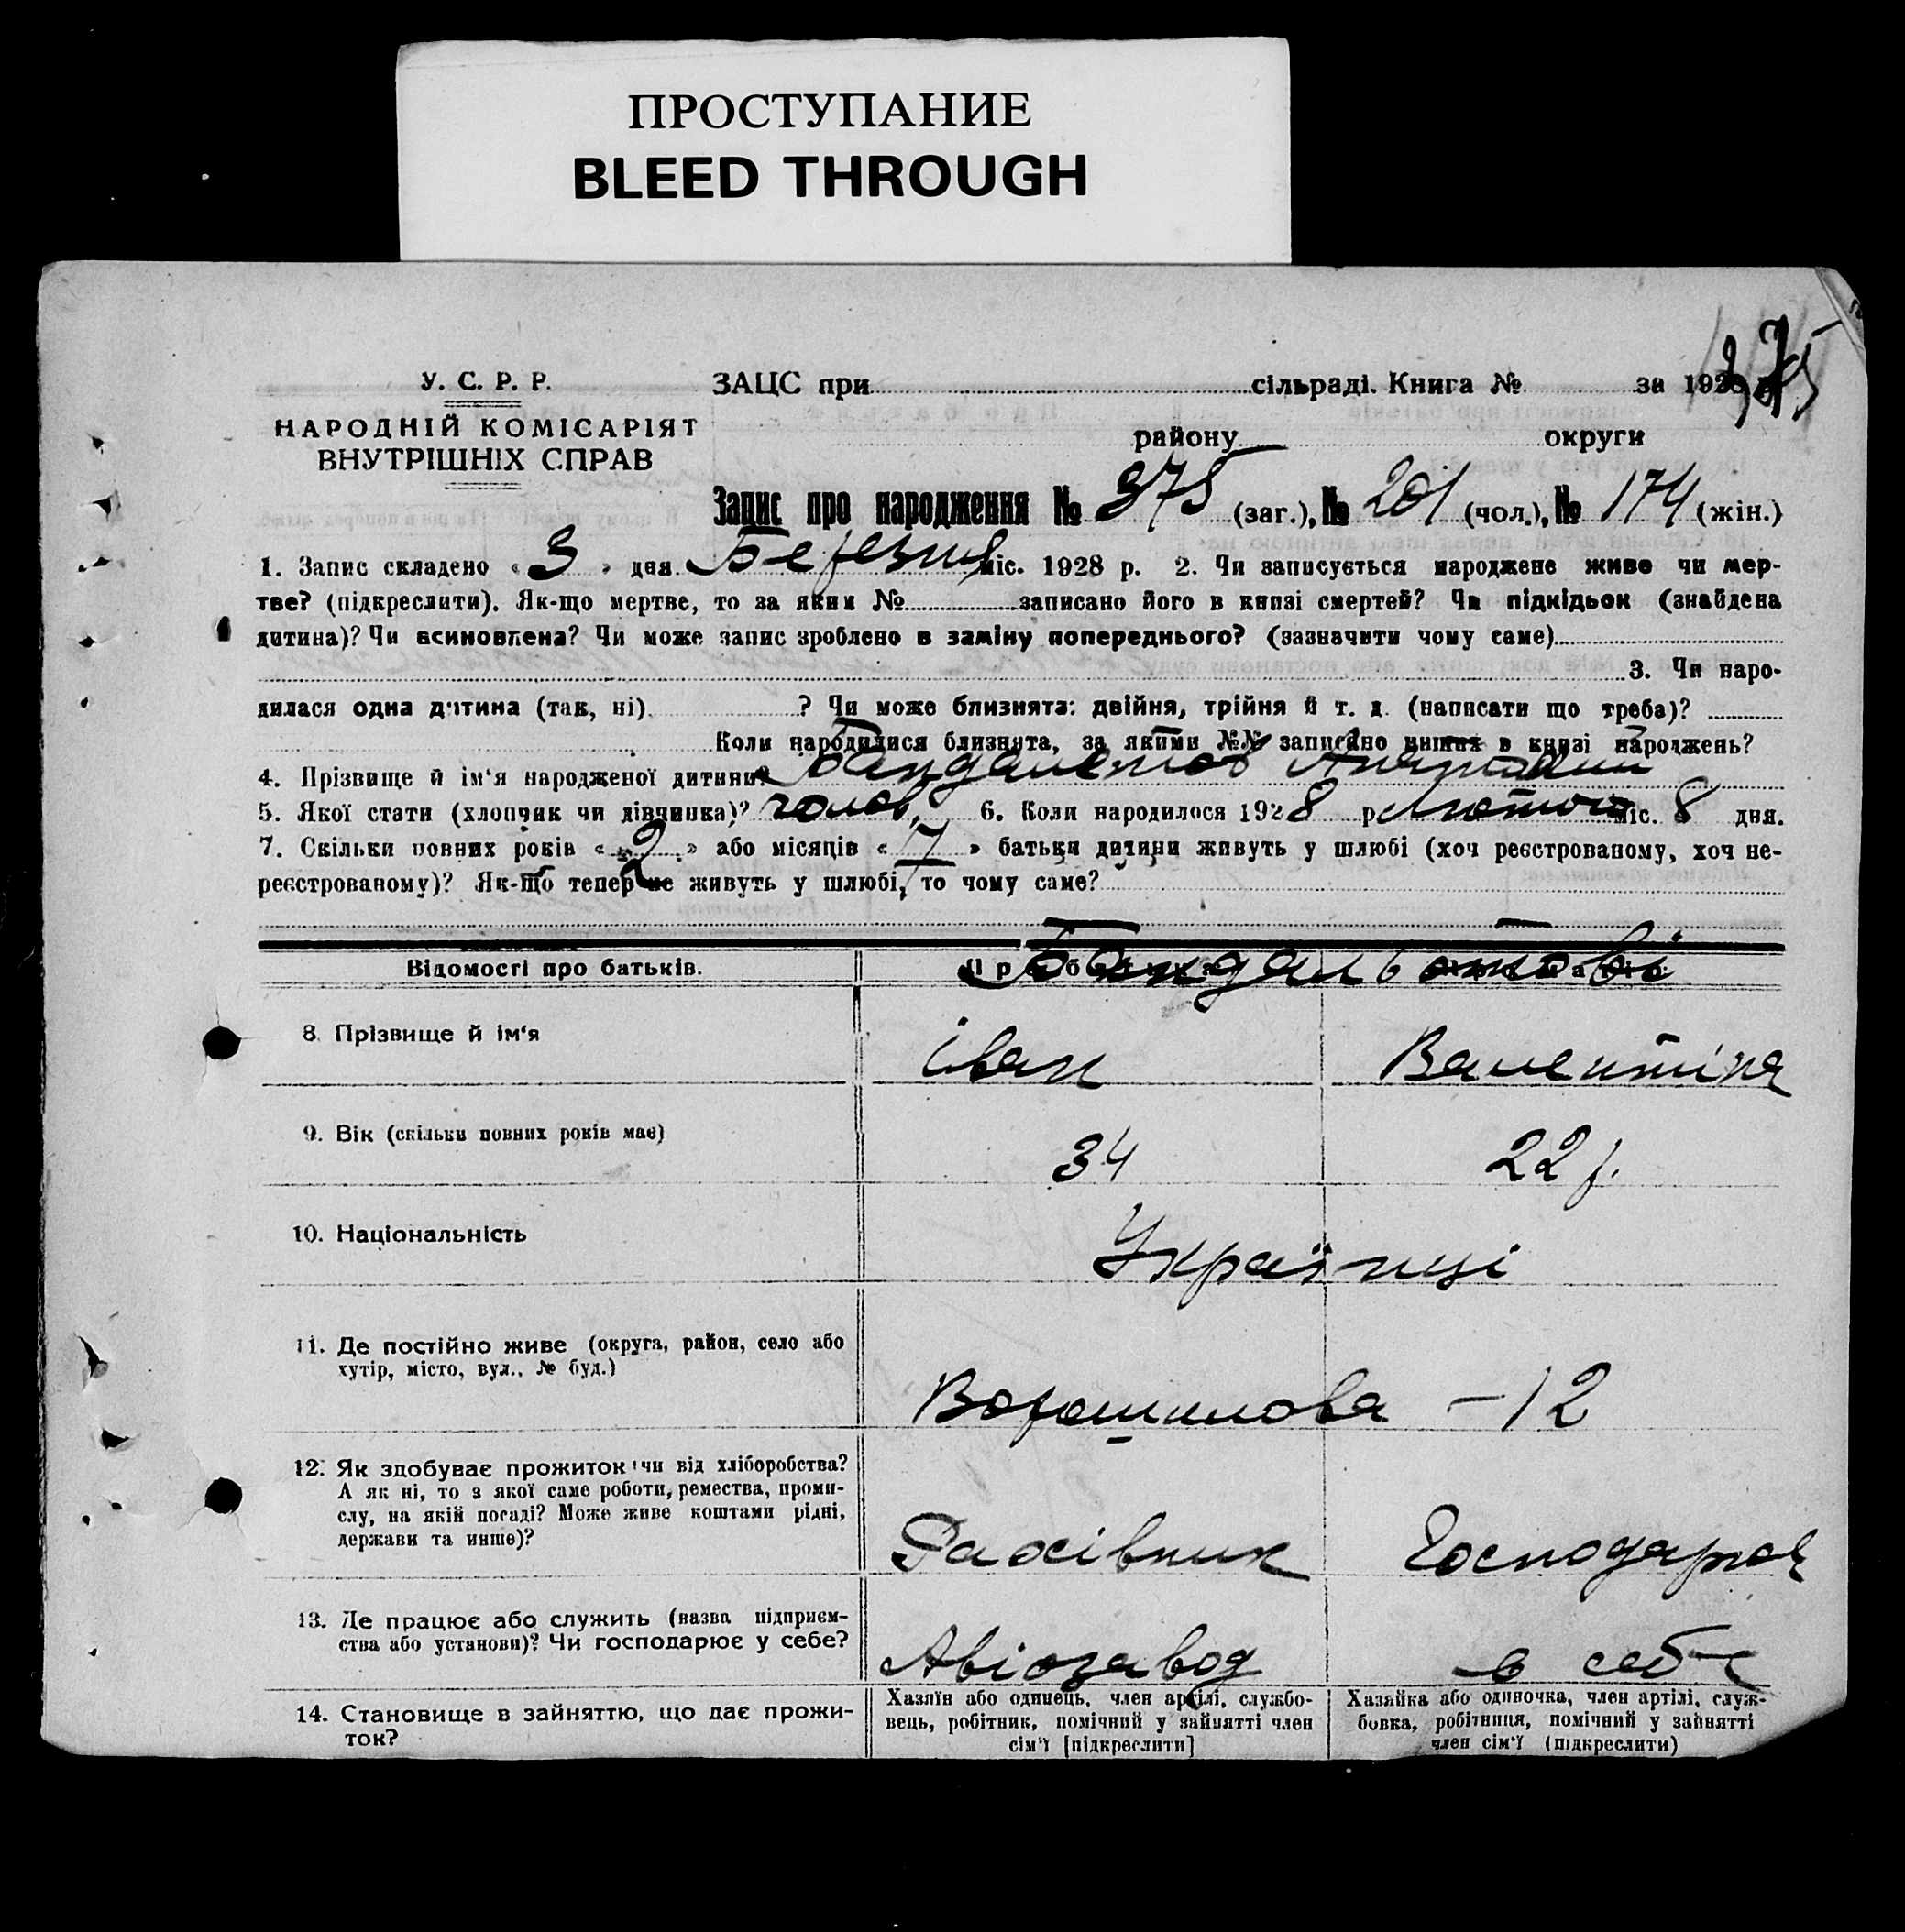 ПРОСТУПАНИЕ
BLEED THROUGH
375
У. С. Р. Р.
НАРОДНІЙ КОМІСАРІЯТ
ВНУТРІШНІХ СПРАВ
ЗАЦС при сільраді. Книга № за 1928 р.
району округи
Запис про народження № 375 (заг.), № 201 (чол.), № 174 (жін.)
1. Запис складено « 3 » дня Березня міс. 1928 р. 2. Чи записується народжене живе чи мер-
тве? (підкреслити). Як-що мертве, то за яким № записано його в книзі смертей? Чи підкідьок (знайдена
дитина)? Чи всиновлена? Чи може запис зроблено в заміну попереднього? (зазначити чому саме)
3. Чи наро-
дилася одна дитина (так, ні) ? Чи може близнята: двійня, трійня й т. д. (написати що треба)?
Коли народилися близнята, за якими №№ записано инших в книзі народжень?
4. Прізвище й ім‘я народженої дитини?
5. Якої стати (хлопчик чи дівчинка)? чолов. 6. Коли народилося 1928 р. Лютого міс. 8 дня.
7. Скільки повних років « 2 » або місяців « 7 » батьки дитини живуть у шлюбі (хоч реєстрованому, хоч не-
реєстрованому)? Як-що тепер не живуть у шлюбі, то чому саме?
Відомості про батьків.
8. Прізвище й ім‘я Іван Валентіна
9. Вік (скільки повних років має) 34 22 р.
10. Національність Українці
11. Де постійно живе (округа, район, село або
хутір, місто, вул., № буд.)
Ворошилова – 12
12. Як здобуває прожиток (чи від хліборобства?
А як ні, то з якої саме роботи, ремества, проми-
слу, на якій посаді? Може живе коштами рідні,
держави та инше)?
Рахівник Господарює
13. Де працює або служить (назва підприєм-
ства або установи)? Чи господарює у себе?
Авіозавод в себе
14. Становище в зайняттю, що дає прожи-
ток?
Хазяїн або одинець, член артілі, службо-
вець, робітник, помічний у зайнятті член
сім‘ї [підкреслити]
Хазяйка або одиночка, член артілі, служ-
бовка, робітниця, помічний у зайнятті
член сім‘ї (підкреслити)